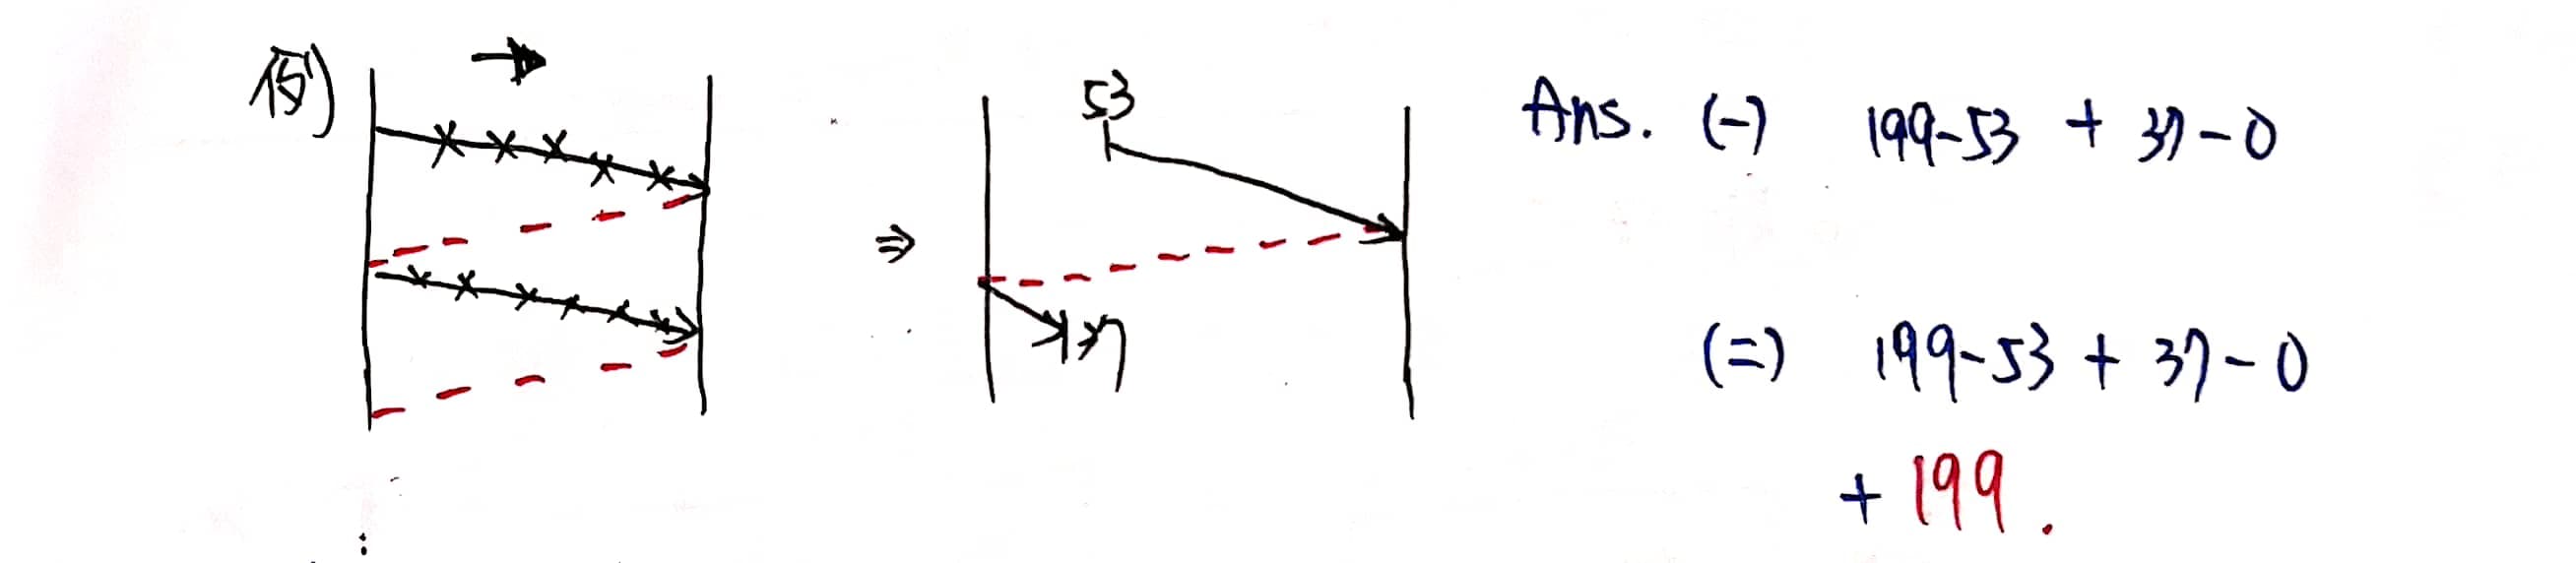 例)
53
37
Ans. (一) 199-53 + 37-0
(二) 199-53 + 37-0
+ 199.